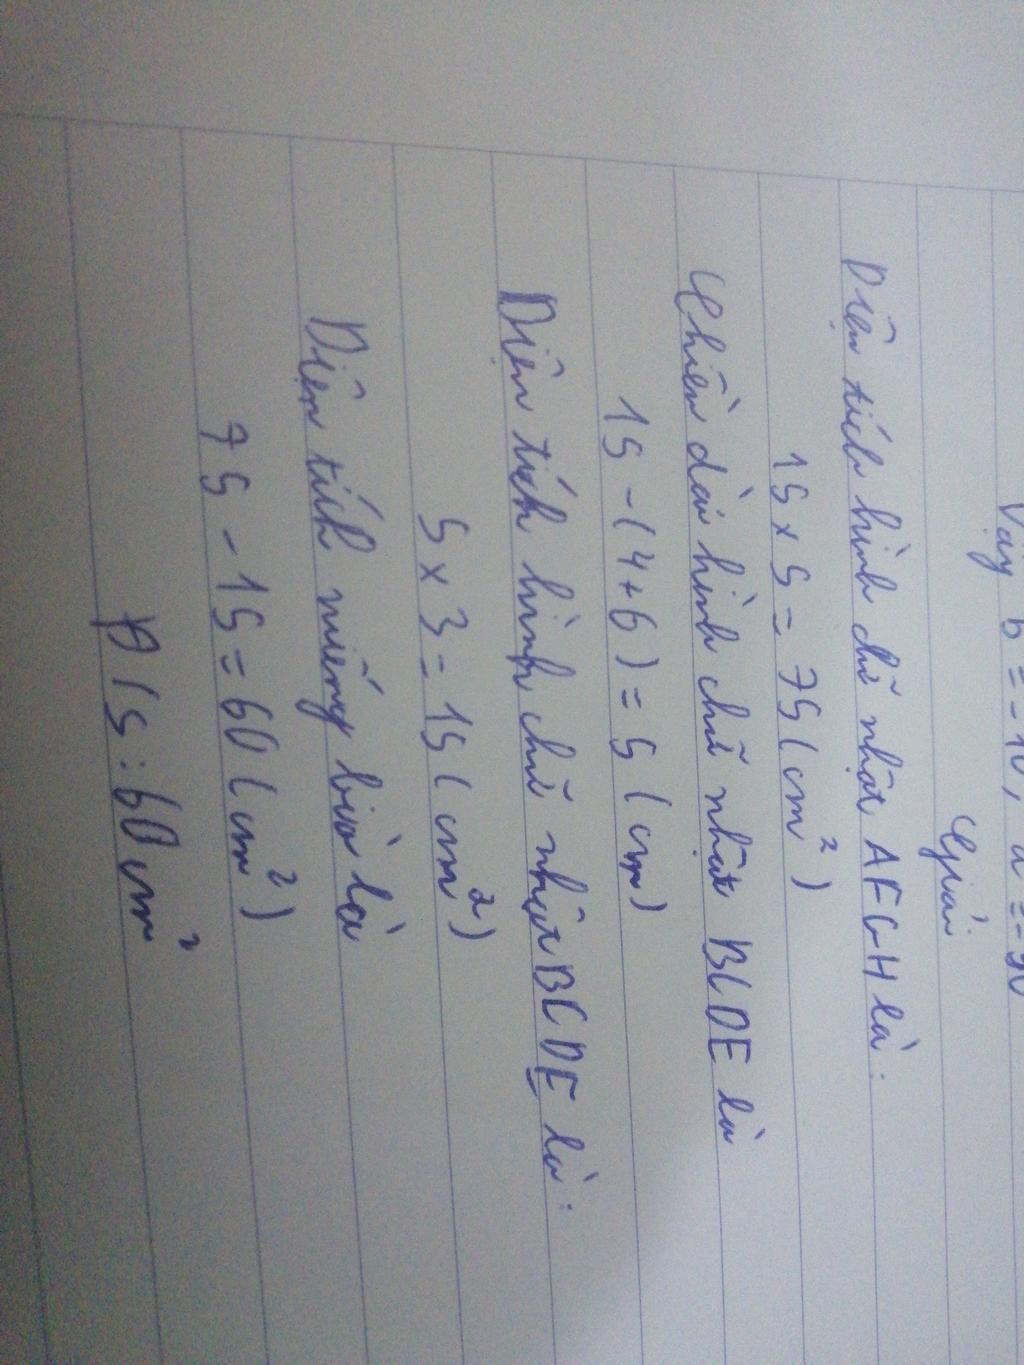 Vậy b = -10, a = -90
Giải
Diện tích hình chữ nhật AFGH là:
15 x 5 = 75 (cm²)
Chiều dài hình chữ nhật BCDE là
15 - (4+6) = 5 (cm)
Diện tích hình chữ nhật BCDE là:
5 x 3 = 15 (cm²)
Diện tích miếng bìa là
75 - 15 = 60 (cm²)
Đ/S: 60 cm²